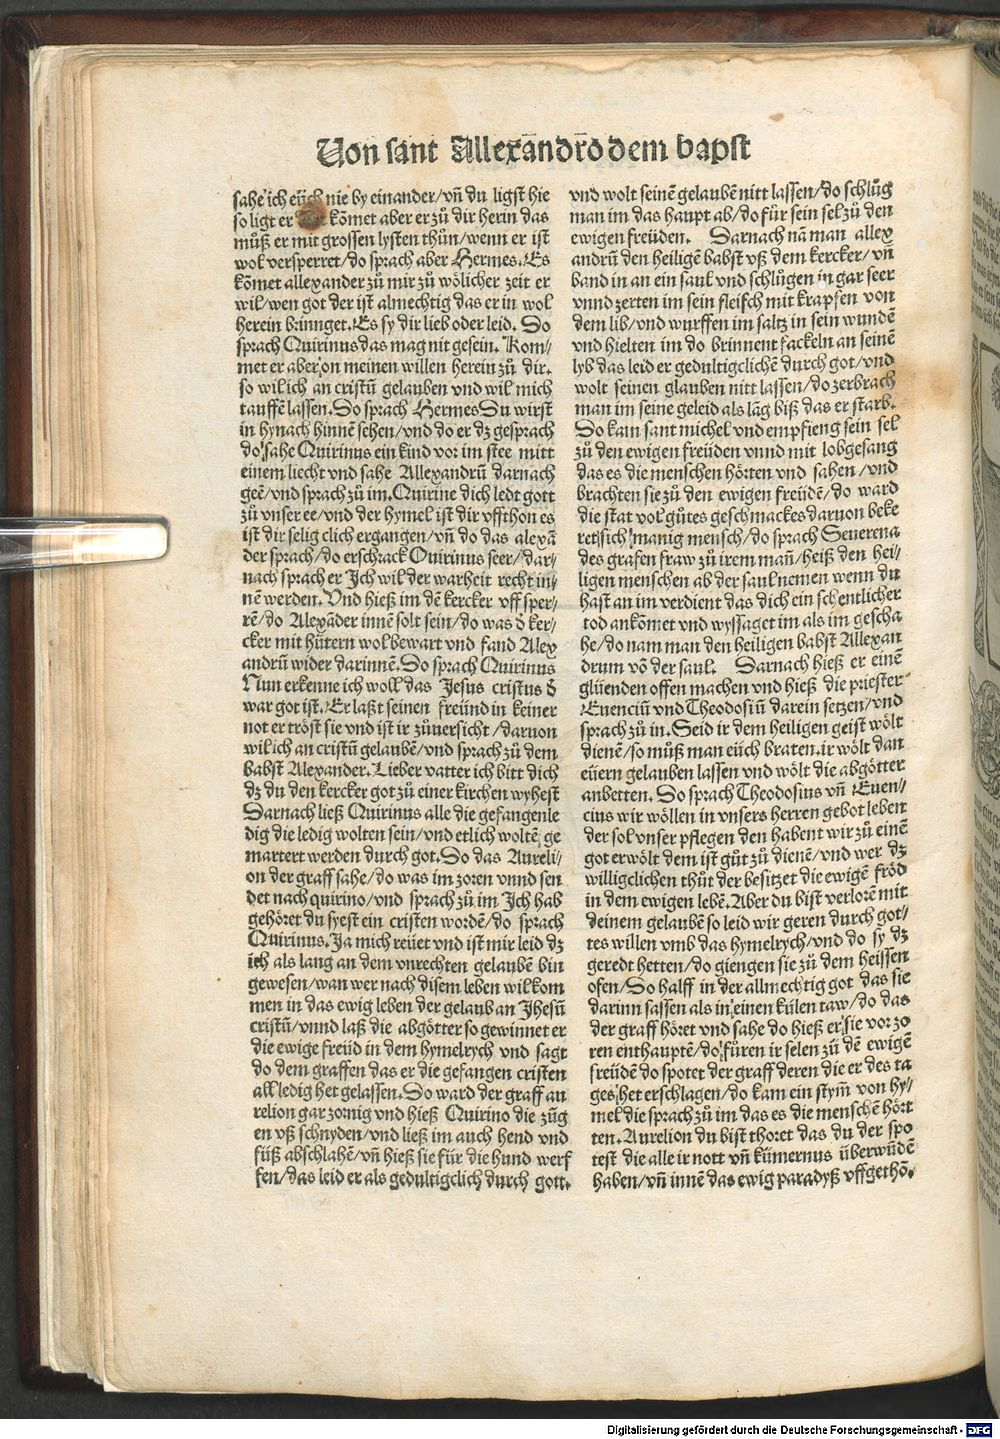 Von sant Allexand̄ro dem bapst
sahe ich eüch nie by einander/vn̄ du ligst hie
so ligt er kōmet aber er zů dir herin das
můß er mit grossen lysten thůn/wenn er ist
wol versperret/do sprach aber Hermes. Es
kōmet allexander zů mir zů wölicher zeit er
wil/wen got der ist almechtig das er in wol
herein brinnget. Es sy dir lieb oder leid. Do
sprach Quirinus das mag nit gesein. Kom//
met er aber on meinen willen herein zů dir.
so wil ich an cristū gelauben vnd wil mich
tauffē lassen. Do sprach Hermes Du wirst
in hynach hinnē sehen/vnd do er dz gesprach
do sahe Quirinus ein kind vor im stee mitt
einem liecht vnd sahe Allexandrū darnach
geē/vnd sprach zů im. Quirine dich ledt gott
zů vnser ee/vnd der hymel ist dir vffthon es
ist dir selig clich ergangen/vn̄ do das alexā
der sprach/do erschrack Quirinus seer/dar//
nach sprach er Ich wil der warheit recht in//
nē werden. Vnd hieß im dē kercker vff sper//
rē/do Alexāder innē solt sein/do was d̄ ker//
cker mit hütern wol bewart vnd fand Alex
andrū wider darinnē. Do sprach Quirinus
Nun erkenne ich woll das Jesus cristus d̄
war got ist. Er laßt seinen freünd in keiner
not er tröst sie vnd ist ir zůuersicht/daruon
wil ich an cristū gelaubē/vnd sprach zů dem
babst Alexander. Lieber vatter ich bitt dich
dz du den kercker got zů einer kirchen wyhest
Darnach ließ Quirinus alle die gefangenle
dig die ledig wolten sein/vnd etlich woltē ge
martert werden durch got. Do das Aureli//
on der graff sahe/do was im zoren vnnd sen
det nach quirino/vnd sprach zů im Ich hab
gehöret du syest ein cristen wordē/do sprach
Quirinus. Ja mich reüet vnd ist mir leid dz
ich als lang an dem vnrechten gelaubē bin
gewesen/wan wer nach disem leben wil kom
men in das ewig leben der gelaub an Jhesū
cristū/vnnd laß die abgötter so gewinnet er
die ewige freüd in dem hymelrych vnd sagt
do dem graffen das er die gefangen cristen
all ledig het gelassen. Do ward der graff au
relion gar zornig vnd hieß Quirino die zůg
en vß schnyden/vnd ließ im auch hend vnd
füß abschlahē/vn̄ hieß sie für die hund werf
fen/das leid er als gedultigclich durch gott.
vnd wolt seinē gelaubē nitt lassen/do schlůg
man im das haupt ab/do für sein sel zů den
ewigen freüden. Darnach nā man allex
andrū den heiligē babst vß dem kercker/vn̄
band in an ein saul vnd schlůgen in gar seer
vnnd zerten im sein fleisch mit krapfen von
dem lib/vnd wurffen im saltz in sein wundē
vnd hielten im do brinnent fackeln an seinē
lyb das leid er gedultigclichē durch got/vnd
wolt seinen glauben nitt lassen/do zerbrach
man im seine geleid als lāg biß das er starb.
Do kam sant michel vnd empfieng sein sel
zů den ewigen freüden vnnd mit lobgesang
das es die menschen hörten vnd sahen/vnd
brachten sie zů den ewigen freüdē/do ward
die stat vol gůtes geschmackes daruon beke
ret sich manig mensch/do sprach Seuerena
des grafen fraw zů irem man̄/heiß den hei//
ligen menschen ab der saul nemen wenn du
hast an im verdient das dich ein schentlicher
tod ankōmet vnd wyssaget im als im gescha
he/do nam man den heiligen babst Allexan
drum vō der saul. Darnach hieß er einē
glüenden offen machen vnd hieß die priester
Euenciū vnd Theodosiū darein setzen/vnd
sprach zů in. Seid ir dem heiligen geist wölt
dienē/so můß man eüch braten. ir wölt dan
eüern gelauben lassen vnd wölt die abgötter
anbetten. Do sprach Theodosius vn̄ Euen//
cius wir wöllen in vnsers herren gebot leben
der sol vnser pflegen den habent wir zů einē
got erwölt dem ist gůt zů dienē/vnd wer dz
willigclichen thůt der besitzet die ewigē fröd
in dem ewigen lebē. Aber du bist verlorē mit
deinem gelaubē so leid wir geren durch got//
tes willen vmb das hymelrych/vnd do sy dz
geredt hetten/do giengen sie zů dem heissen
ofen/So halff in der allmechtig got das sie
darinn sassen als in einen külen taw/do das
der graff höret vnd sahe do hieß er sie vor zo
ren enthauptē/do füren ir selen zů dē ewigē
freüdē do spotet der graff deren die er des ta
ges het erschlagen/do kam ein stym̄ von hy//
mel die sprach zů im das es die menschē hört
ten. Aurelion du bist thoret das du der spo
test die alle ir nott vn̄ kümernus überwūdē
haben/vn̄ innē das ewig paradyß vffgethō.
Digitalisierung gefördert durch die Deutsche Forschungsgemeinschaft - DFG